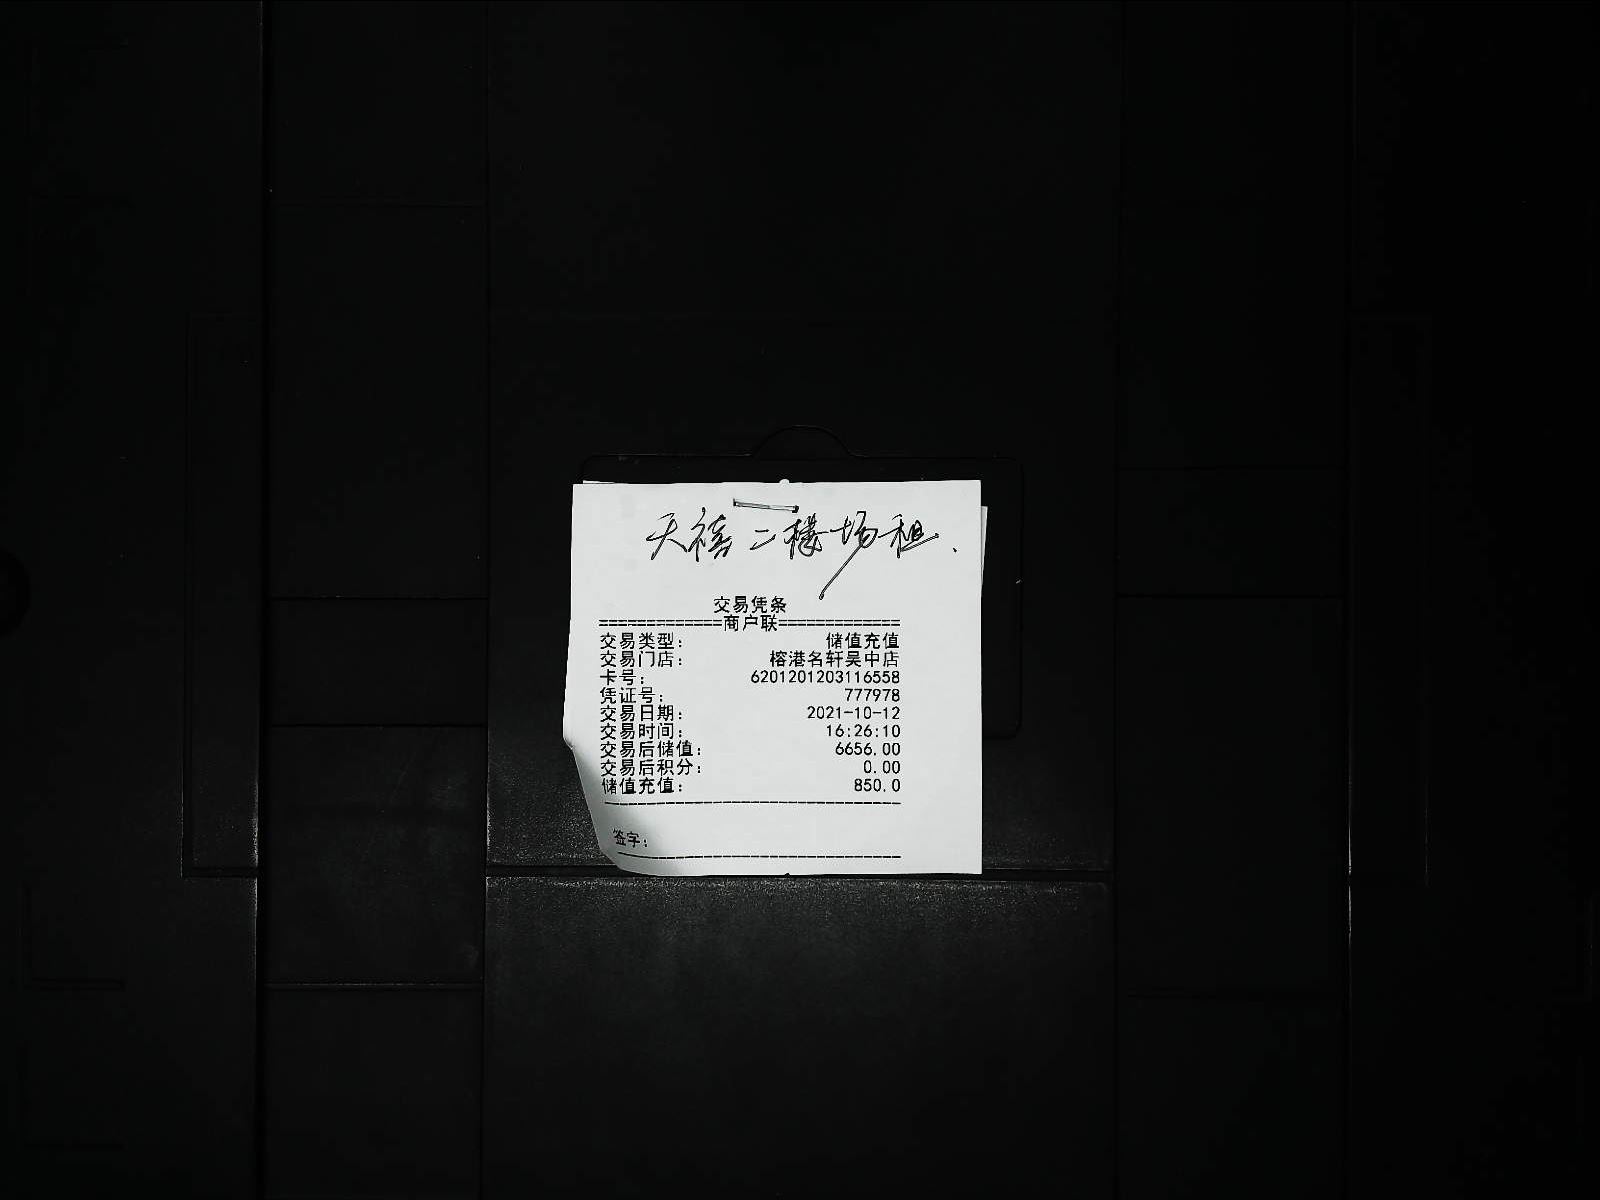 天禧二楼场租.
交易凭条
=============商户联=============
交易类型: 储值充值
交易门店: 榕港名轩吴中店
卡号: 6201201203116558
凭证号: 777978
交易日期: 2021-10-12
交易时间: 16:26:10
交易后储值: 6656.00
交易后积分: 0.00
储值充值: 850.0
签字: